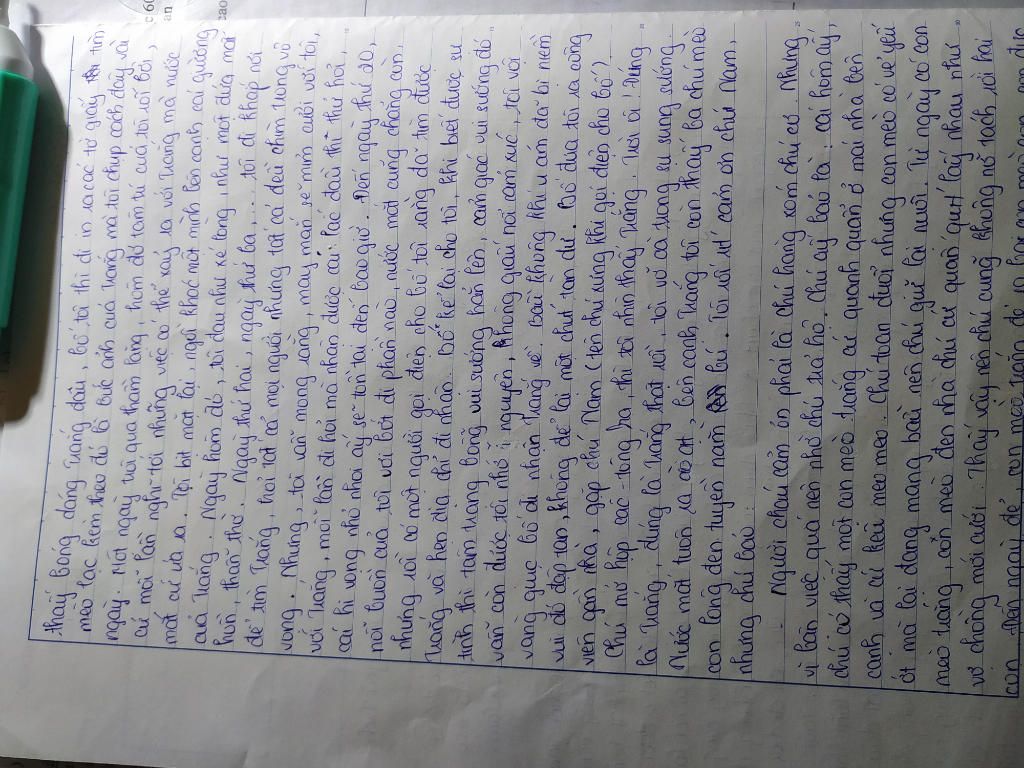 thấy bóng dáng Trắng đâu, bố tôi thì đi in ra các tờ giấy tìm
mèo lạc kèm theo đó là bức ảnh của Trắng mà tôi chụp cách đây vài
ngày. Một ngày trôi qua thầm lặng, hôm đó tâm trí của tôi rối bời,
cứ mỗi lần nghĩ tới những việc có thể xảy ra với Trắng mà nước
mắt cứ ứa ra. Tôi bịt mắt lại, ngồi khóc một mình bên cạnh cái giường
của Trắng. Ngày hôm đó, tôi đau như xé lòng, như một đứa mất
hồn, thẫn thờ. Ngày thứ hai, ngày thứ ba,... tôi đi khắp nơi
để tìm Trắng, hỏi tất cả mọi người nhưng tất cả đều chìm trong vô
vọng. Nhưng, tôi vẫn mong rằng, may mắn sẽ mỉm cười với tôi,
với Trắng, mỗi lần đi hỏi mà nhận được cái lắc đầu thì thú hỏi,
cái hi vọng nhỏ nhoi ấy sẽ tồn tại đến bao giờ. Đến ngày thứ 20,
nỗi buồn của tôi vơi bớt đi phần nào, nước mắt cũng chẳng còn,
nhưng rồi có một người gọi điện cho bố tôi rằng đã tìm được
Trắng và hẹn địa chỉ đi nhận. Bố kể lại cho tôi, khi biết được sự
tình thì tâm trạng bỗng vui sướng hẳn lên, cảm giác vui sướng đó
vẫn còn được tôi nhớ y nguyên, không giấu nổi cảm xúc, tôi vội
vàng giục bố đi nhận Trắng về. Bầu không khí u ám đã bị niềm
vui đó dập tan, không để lại một chút tàn dư. Bố đưa tôi ra công
viên gần nhà, gặp chú Nam (tên chú hứng khi gọi điện cho bố)
Chú mở hộp các-tông ra, thì tôi nhìn thấy Trắng. Trời ơi! Đúng
là Trắng, đúng là Trắng thật rồi, tôi vỡ oà trong sự sung sướng.
Nước mắt tuôn ra ướt, bên cạnh Trắng tôi còn thấy ba chú mèo
con lông đen tuyền nằm bú. Tôi rối rít cảm ơn chú Nam,
nhưng chú bảo:
- Người cháu cảm ơn phải là chú hàng xóm chú cơ. Nhưng
vì bận việc quá nên nhờ chú trả hộ. Chú ấy bảo là: cái hôm ấy,
chú có thấy một con mèo trắng cứ quanh quẩn ở mái nhà bên
cạnh và cứ kêu meo meo. Chú toan đuổi nhưng con mèo có vẻ yếu
ớt mà lại đang mang bầu nên chú giữ lại nuôi. Từ ngày có con
mèo trắng, con mèo đen nhà chú cứ quấn quýt lấy nhau như
vợ chồng mới cưới. Thấy vậy nên chú cũng không nỡ tách rời hai
con. Đến ngày đẻ, con mèo trắng đẻ ra ba con mèo con